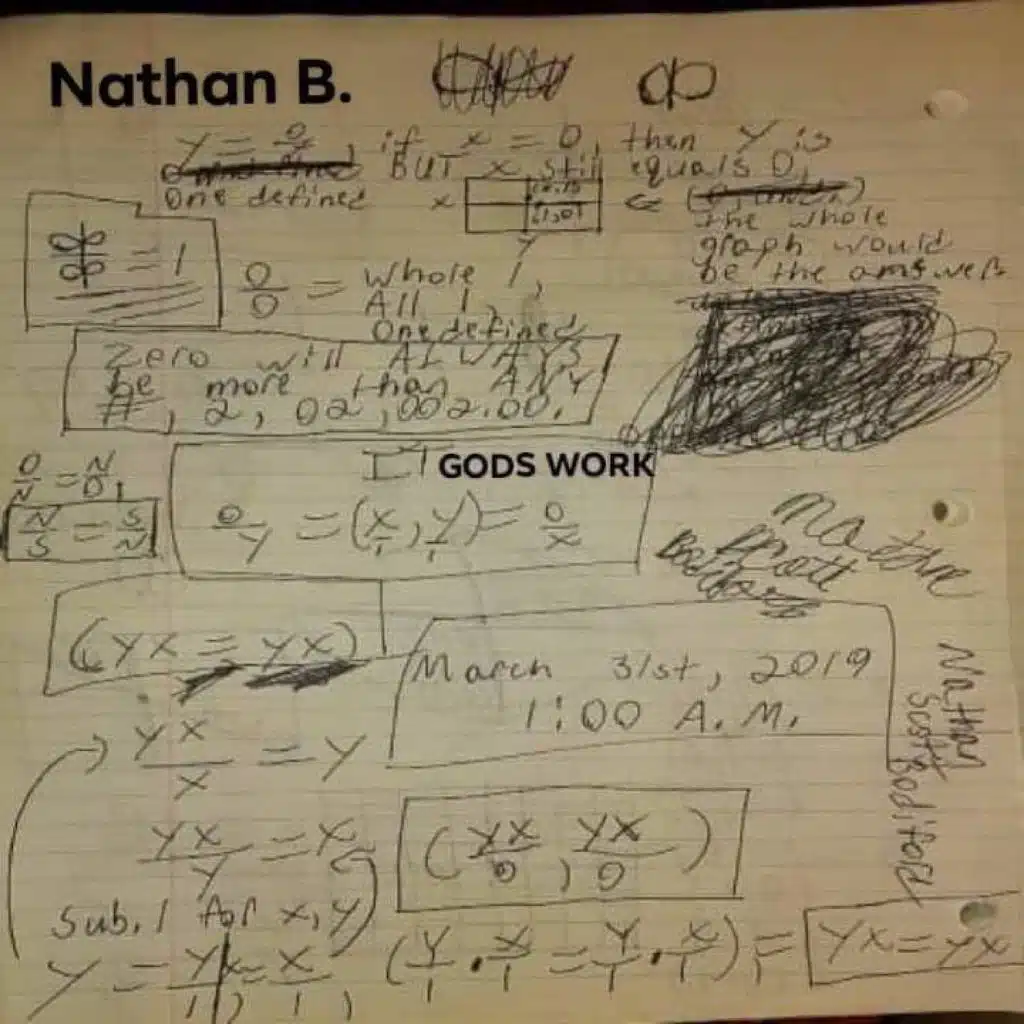 Nathan B.
y = 0/x, if x = 0, then y is
One defined BUT x still equals 0,
x
y
(1,0)
The whole
graph would
be the answer
∞/∞ = 1
0/0 = Whole 1,
All 1,
One defined
Zero will ALWAYS
be more than ANY
#, 2, 02, 002.00.
0/N = N/0,
N/S = S/N
GODS WORK
0/y = (x/1, y/1) = 0/x
Nathan
Scott
(yx = yx)
March 31st, 2019
1:00 A.M.
Nathan
Scott
yx/x = y
yx/y = x
(yx/0, yx/0)
Sub. 1 for x, y
y = yx/1, = x/1,
(y/1 · x/1 = y/1 · x/1) = yx = yx